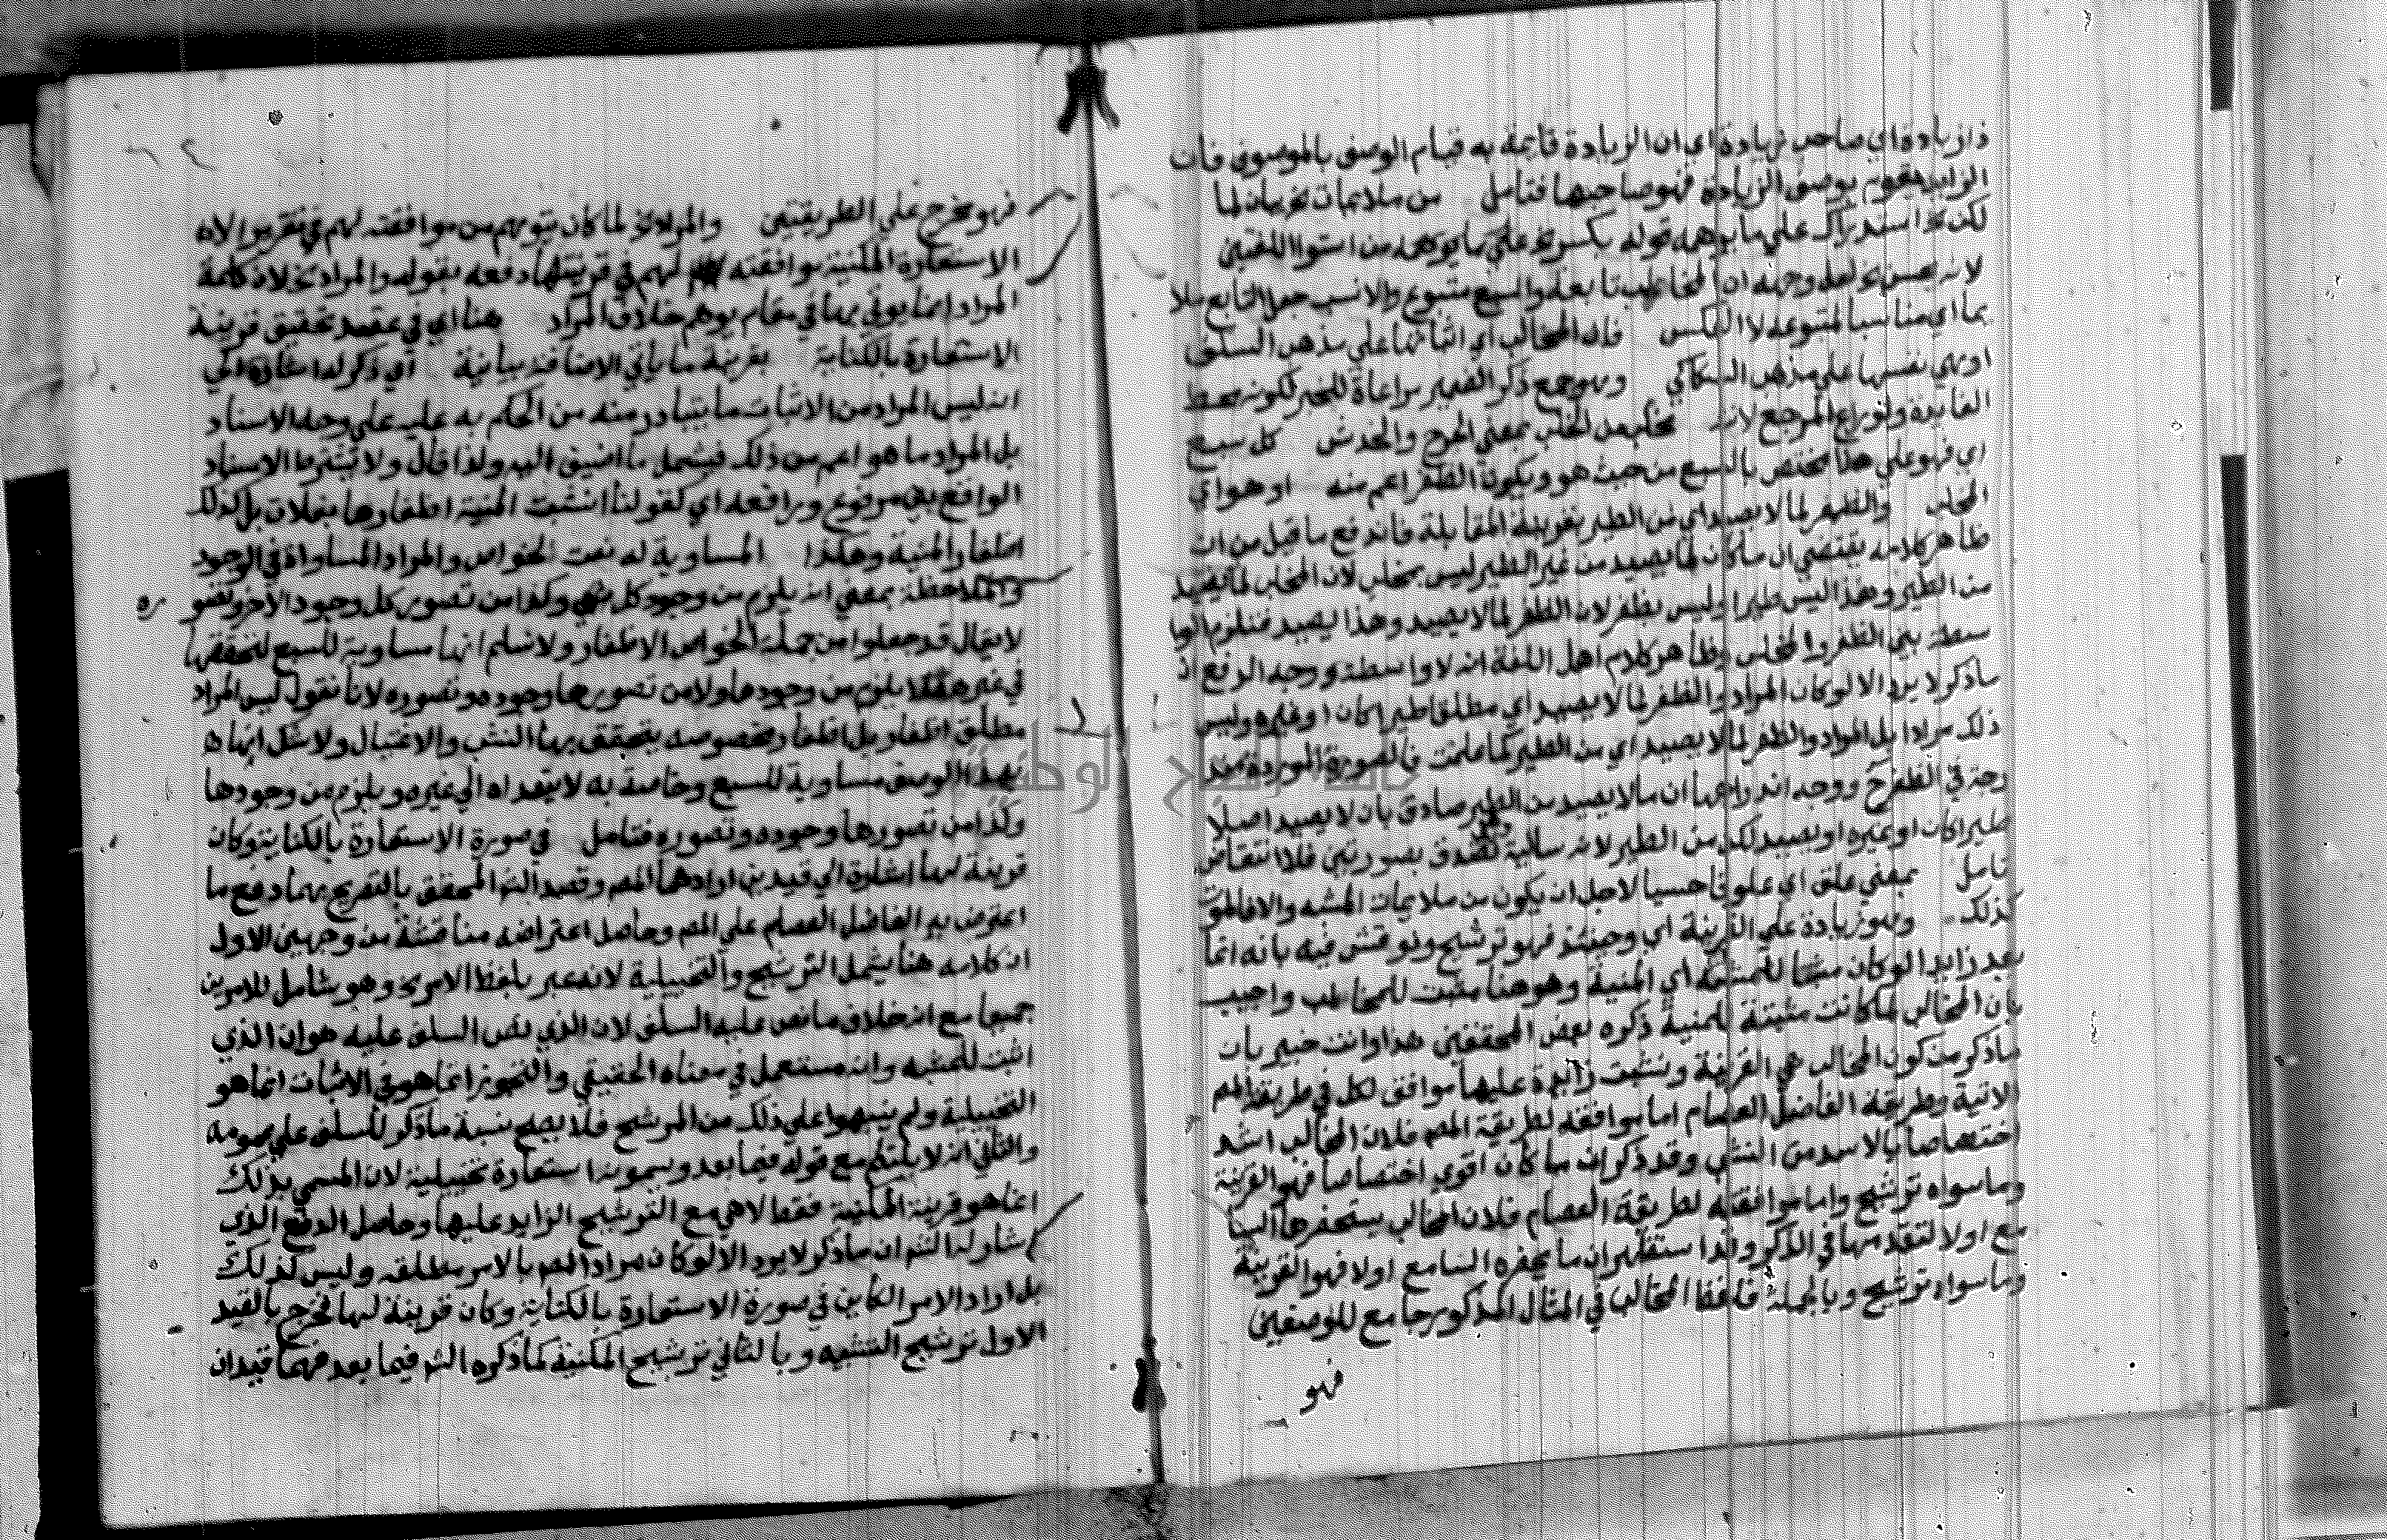 ذا زيادة اي صاحب زيادة اي ان الزيادة قائمة به قيام الوصف بالموصوف فان
الزايد يقوم بوصف الزيادة فهو صاحبها فتامل من ملايمات تخريبان لما
لكن استدراك علي ما يوهمه قوله بكسر علي ما من استوا اللغتين
لانه لعل وجهه ان المخاطب تابعة والسبع متبوع والانسب جعل التابع ملا
يما اي مناسبا لمتبوعه لا العكس فان المخالب اي اثباتها علي مذهب السلف
او هي نفسها علي مذهب السكاكي وهو مرجع ذكر الضمير مراعاة للخبر لكونه محط
الفايدة ولو راع المرجع لانث مخلب من الخلب بمعني الجرح والخدش كل سبع
اي فهو علي هذا مختص بالسبع من حيث هو ويكون الظفر اعم منه او هو اي
المخلب والظفر لما لا يصيد اي من الطير بقرينة المقابلة فاندفع ما قيل من ان
ظاهر كلامه يقتضي ان ما كان لما يصيد من غير الطير ليس بمخلب لان المخلب لما يصيد
من الطير وهذا ليس طيرا وليس بظفر لان الظفر لما لا يصيد وهذا يصيد فتلزم الوا
سطة بين الظفر والمخلب وظاهر كلام اهل اللغة انه لا واسطة ووجه الدفع ان
ماذكر لا يرد الا لو كان المراد والظفر لما لا يصيد اي مطلقا طيرا كان او غيره وليس
ذلك مرادا بل المراد والظفر لما لا يصيد اي من الطير كما علمت فالصورة الموردة مند
رجة في الظفر ح ووجه اندراجها ان ما لا يصيد من الطير صادق بان لا يصيد اصلا
طيرا كان او غيره او يصيد لكن من الطير لانه سالبة تصدق بصورتين فلا انتقاض
تامل بمعني علق اي علوقا حسيا لاجل ان يكون من ملايمات المشبه والا فالموت
كذلك وهو زيادة علي القرينة اي وحينئذ فهو ترشيح ونوقش فيه بانه انما
يعد زايدا لو كان مثبتا للمشبه اي المنية وهو هنا مثبت للمخالب واجيب
بان المخالب لما كانت مثبتة للمنية ذكره بعض المحققين هذا وانت خبير بان
ماذكر من كون المخالب هي القرينة ونشبت زايدة عليها موافق لكل في طريقة المص
الاتية وطريقة الفاضل العصام اما موافقة لطريقة المص فلان المخالب اشد
اختصاصا بالاسد من النشب وقد ذكر ان ما كان اقوي اختصاصا فهو القرينة
وما سواه ترشيح واما موافقته لطريقة العصام فلان المخالب يستحضرها السا
مع اولا لتقدمها في الذكر ولذا استظهر ان ما يحضره السامع اولا فهو القرينة
وما سواه ترشيح وبالجملة فلفظ المخالب في المثال المذكور جامع للوصفين
فهو
فهو مخرج علي الطريقتين والمراد لما كان يتوهم من موافقته لهم في تقرير الا
الاستعارة المكنية موافقته لهم في قرينتها دفعه بقوله والمراد لان كلمة
المراد انما يوتي بها في مقام يوهم خلاف المراد هنا اي في عقد تحقيق قرينة
الاستعارة بالكناية بقرينة ما ياتي الاضافة بيانية اي ذكر له اشارة الي
انه ليس المراد من الاثبات ما يتبادر منه من الحكم به عليه علي وجه الاسناد
بل المراد ما هو اعم من ذلك فيشمل ما اضيف اليه ولذا قال ولا يشترط الاسناد
الواقع بين مرفوع ورافعه اي كقولنا انشبت المنية اظفارها بفلان بل كذلك
اظفار المنية وهكذا المساوية له نعت الخواص والمراد المساواة في الوجود
والملاحظة بمعني انه يلزم من وجود كل وكذا من تصور كل وجود الاخر وتصو ره
لا يقال قد جعلوا من جملة الخواص الاظفار ولا نسلم انها مساوية للسبع لتحققها
في غيره فلا يلزم من وجودها ولا من تصورها وجوده وتصوره لانا نقول ليس المراد
مطلق اظفار بل اظفار مخصوصة يتحقق بها النشب والاغتيال ولا شك انها
بهذا الوصف مساوية للسبع وخاصة به لا تتعداه الي غيره ويلزم من وجودها
وكذا من تصورها وجوده وتصوره فتامل في صورة الاستعارة بالكناية وكان
قرينة لها اشارة الي قيدين ارادهما المص وقصد الشر المحقق بالتصريح بهما دفع ما
اعترض به الفاضل العصام علي المص وحاصل اعتراضه مناقشة من وجهين الاول
ان كلامه هنا يشمل الترشيح والتخييلية لانه عبر بلفظ الامر وهو شامل للامرين
جميعا مع انه خلاف ما نص عليه السلف لان الذي نص السلف عليه هو ان الذي
اثبت للمشبه وانه مستعمل في معناه الحقيقي والتجوز انما هو في الاثبات انما هو
التخييلية ولم ينبهوا علي ذلك من المرشح فلا يصح نسبة ماذكر للسلف علي عمومه
والثاني انه لا يلتئم مع قوله فيما بعد ويسمونه استعارة تخييلية لان المسمي بذلك
انما هو قرينة المكنية فقط لا هي مع الترشيح الزايد عليها وحاصل الدفع الذي
اشار له الشر ان ماذكر لا يرد الا لو كان مراد المص بالامر مطلقه وليس كذلك
بل اراد الامر الكاين في صورة الاستعارة بالكناية وكان قرينة لها فخرج بالقيد
الاول ترشيح التشبيه وبالثاني ترشيح المكنية كما ذكره الشر فيما بعد فهما قيدان